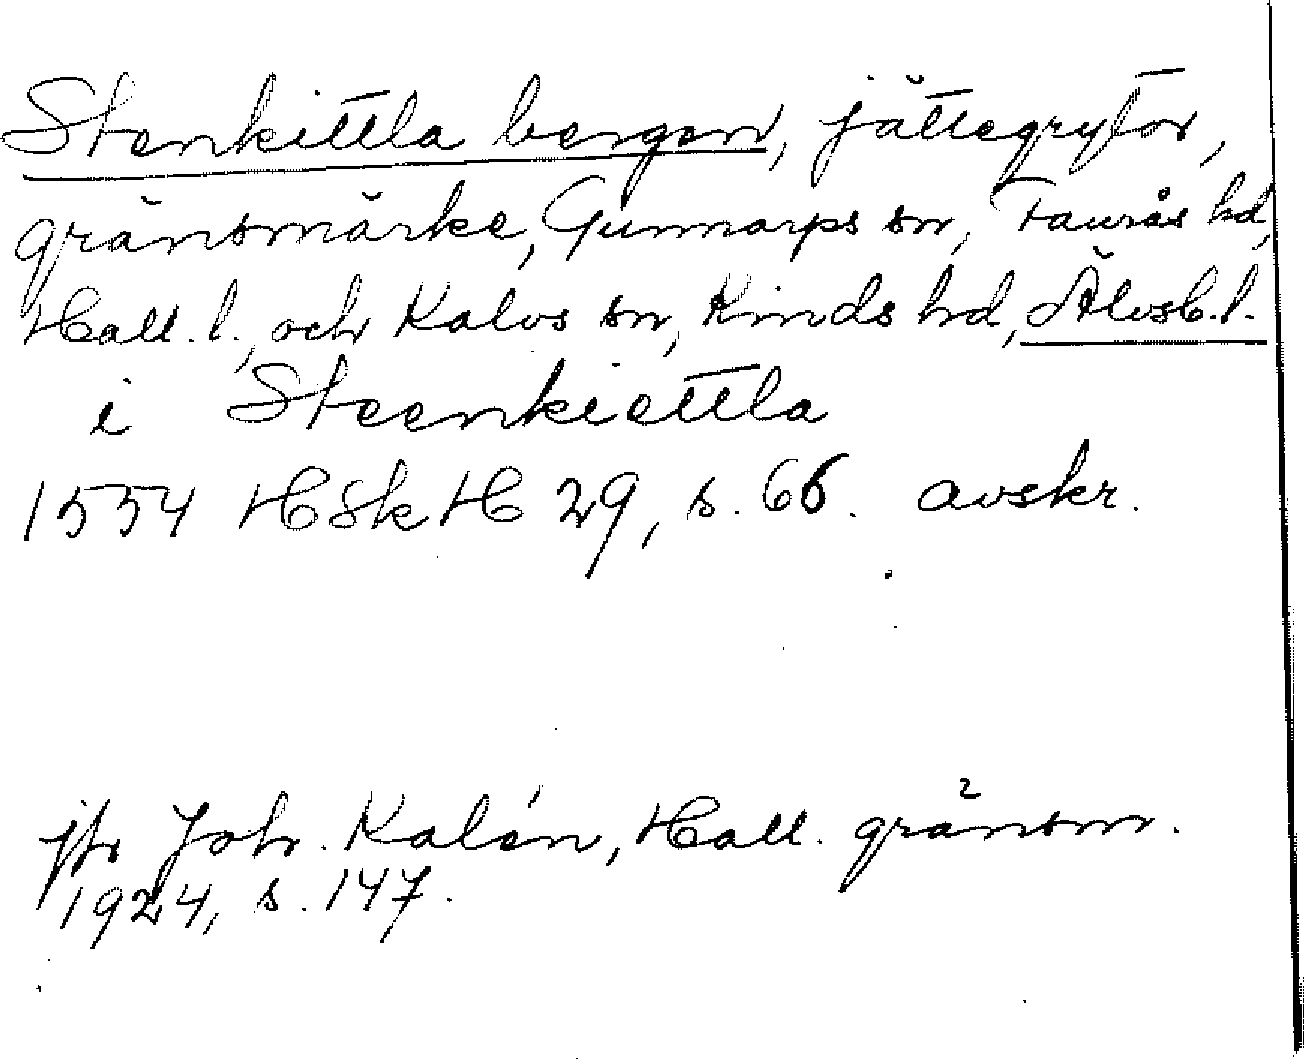 Stenkittla bergen, jättegrytor,
gränsmärke, Gunnarps sn, Faurås hd,
Hall. l., och Kalvs sn, Kinds hd, Älvsb. l.
i Steenkiettla
1554 HSkH 29, s. 66. avskr.
jfr Joh. Kalén, Hall. gränsm.
1924, s. 147.